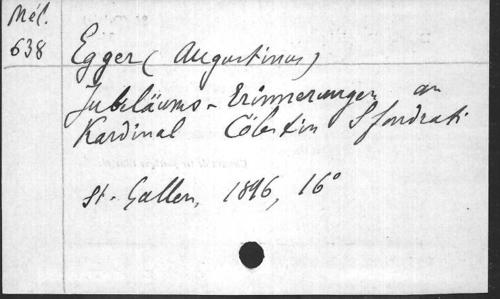 Mél.
638
Egger (Augustinus)
Jubiläums-Erinnerungen an
Kardinal Cölestin Sfondrati
St-Gallen, 1896, 16°